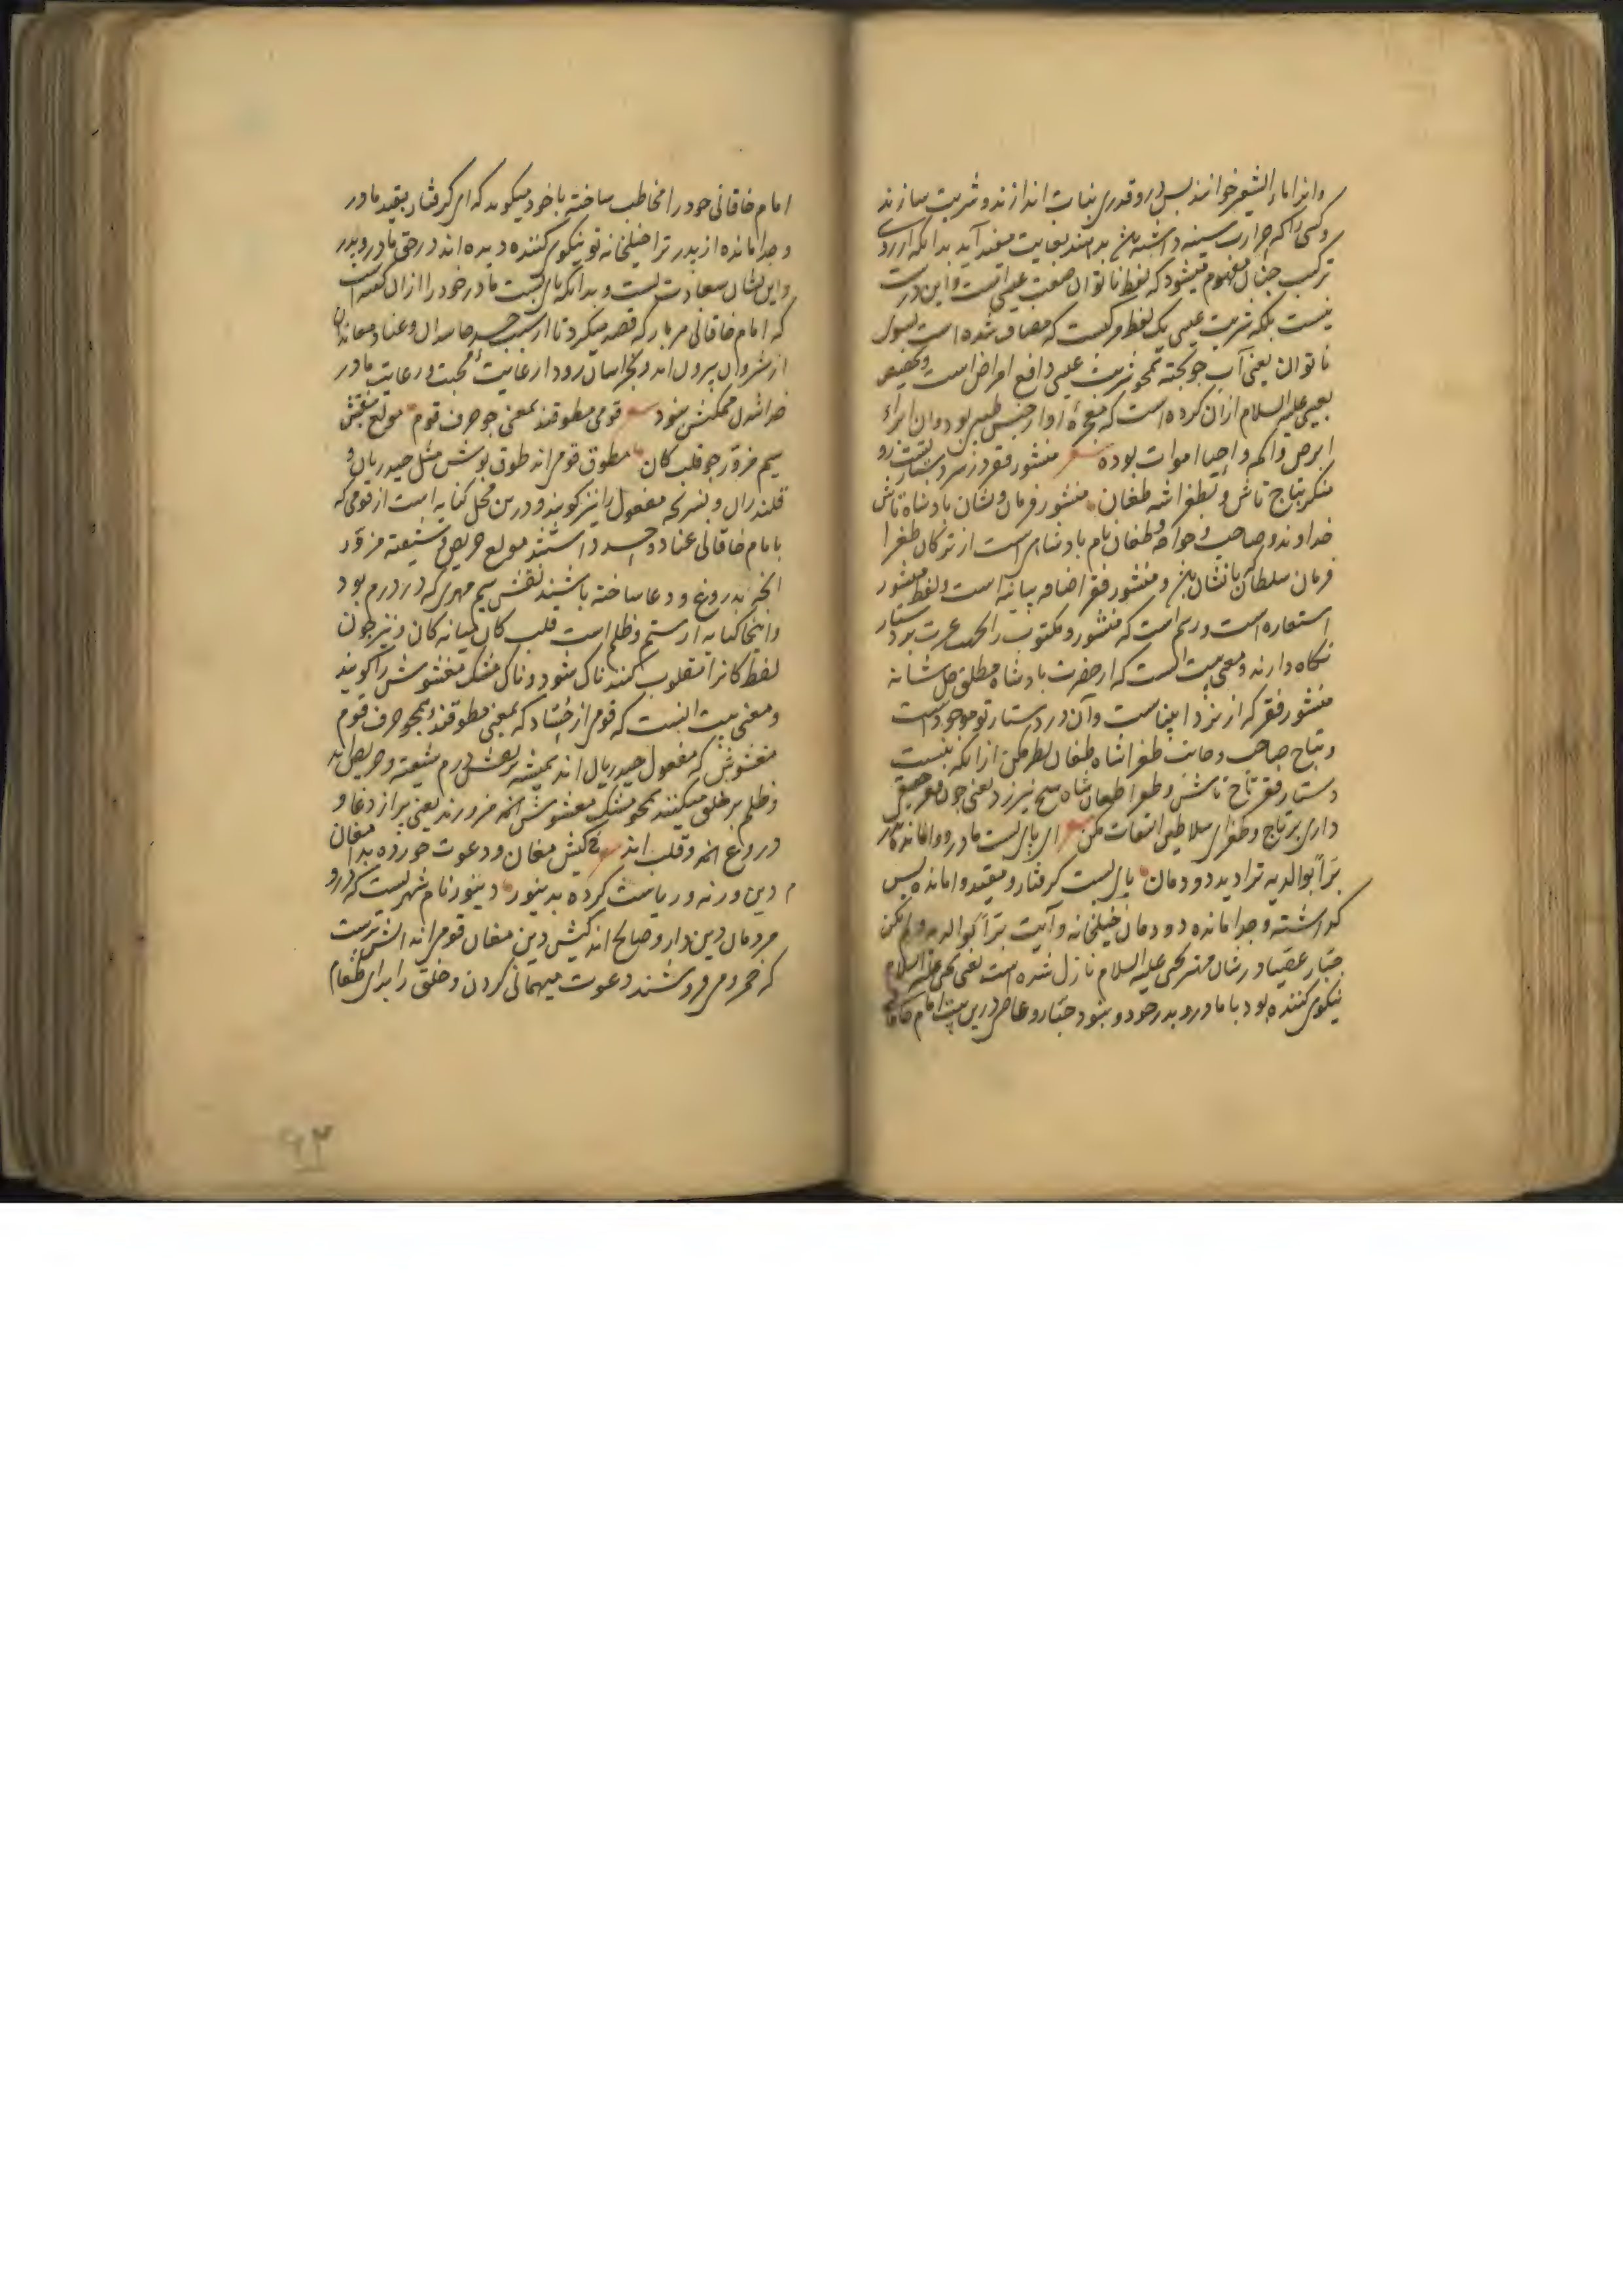 و انرا ماء الشعیر خوانند پس در و قدری نبات اندازند و شربت سازند
و کسی را که حرارت سینه داشته باشد بدهند بغایت مفید آید بدانکه از روی
ترکیب چنان مفهوم میشود که لفظ ناتوان صفت عیسی است و این درست
نیست بلکه شربت عیسی یک لفظ مرکبست که مضاف شده است بسوی
ناتوان یعنی آب جو پخته همچو شربت عیسی دافع امراض است و تخصیص
بعیسی علیه السلام ازان کرده است که معجزهٔ او از جنس طب بود و ان ابراء
ابرص و اکمه و احیا اموات بوده شعر منشور فقر در سر دستار تست رو
منکر بتاج تاش و بطغرا شه طغان منشور فرمان و نشان پادشاه تاش
خداوند و صاحب و خواجه و طغان نام پادشاهی است از ترکان طغرا
فرمان سلطان یا نشان و منشور فقر اضافه بیانیه است و لفظ منشور
استعاره است و رسم است که منشور و مکتوب را بجهت عزت بر دستار
نگاه دارند و معنی بیت انست که از حضرت پادشاه مطلق جل شانه
منشور فقر که از نزد انبیاست وآن در دستار تو موجودست
و بتاج صاحب و طغرا شاه طغان نظر مکن ازانکه به نسبت
دستار فقر تاج تاش و طغرا طغان شاه هیچ نیرزد یعنی چون فقر حقیقی
داری بر تاج و طغرای سلاطین التفات مکن شعر ای پای بست مادر و وامانده پدر
برا بوالدیه ترا دیده دودمان پای بست گرفتار و مقید وامانده پس
گذاشته و جدا مانده دودمان خیلخانه و آیت برا بوالدیه و لم یکن
جبارا عصیا در شان مهتر یحیی علیه السلام نازل شده است یعنی یحیی علیه السلام
نیکوی کننده بود با مادر و پدر خود و نبود جبار و عاصی درین بیت امام خاقانی
امام خاقانی خود را مخاطب ساخته با خود میگوید که ای گرفتار بقید مادر
و جدا مانده از پدر ترا خیلخانه تو نیکوی کننده دیده اند در حق مادر و پدر
و این نشان سعادتست و بدانکه پای بست مادر خود را ازان گفته است
که امام خاقانی هر بار که قصد میکرد تا از سبب حسد حاسدان و عناد معاندان
از شروان بیرون آمد و بخراسان رود از غایت محبت و رعایت مادر
جدا شدن ممکنش نبود شعر قومی مطوقند بمعنی چو حرف قوم مولع بنقش
سیم مزور چو قلب کان مطوق قومی انه طوق پوش مثل حیدریان و
قلندران و نسخه مفعول را نیز گویند و درین محل کنایه است از قومی که
با امام خاقانی عناد و حسد داشتند مولع حریص و شیفته مزور
انچه بدروغ و دغا ساخته باشند نقش سیم مهری که در درم بود
و اینجا کنایه از ستم و ظلم است قلب کان میانه کان و نیز چون
لفظ کانرا مقلوب کنند ناک شود و ناک مشک مغشوش را گویند
و معنی بیت انست که قومی از حساد که بمعنی مطوقند همچو حرف قوم
مغشوش که مفعول حیدریان اند همیشه بر نقش درم شیفته و حریص اند
و ظلم بر خلق میکنند همچو مشک مغشوش انه مزورند یعنی پر از دغا و
دروغ انه و قلب اند شعر کیش مغان و دعوت خورده بدا مغان
دین ور نه و ریاست کرده بدینور دینور نام شهریست که درو
مردمان دین دار و صالح اند کیش دین مغان قومی انه اتش پرست
که خمر و می فروشند دعوت میهمانی کردن و خلق را برای طعام
۹۳